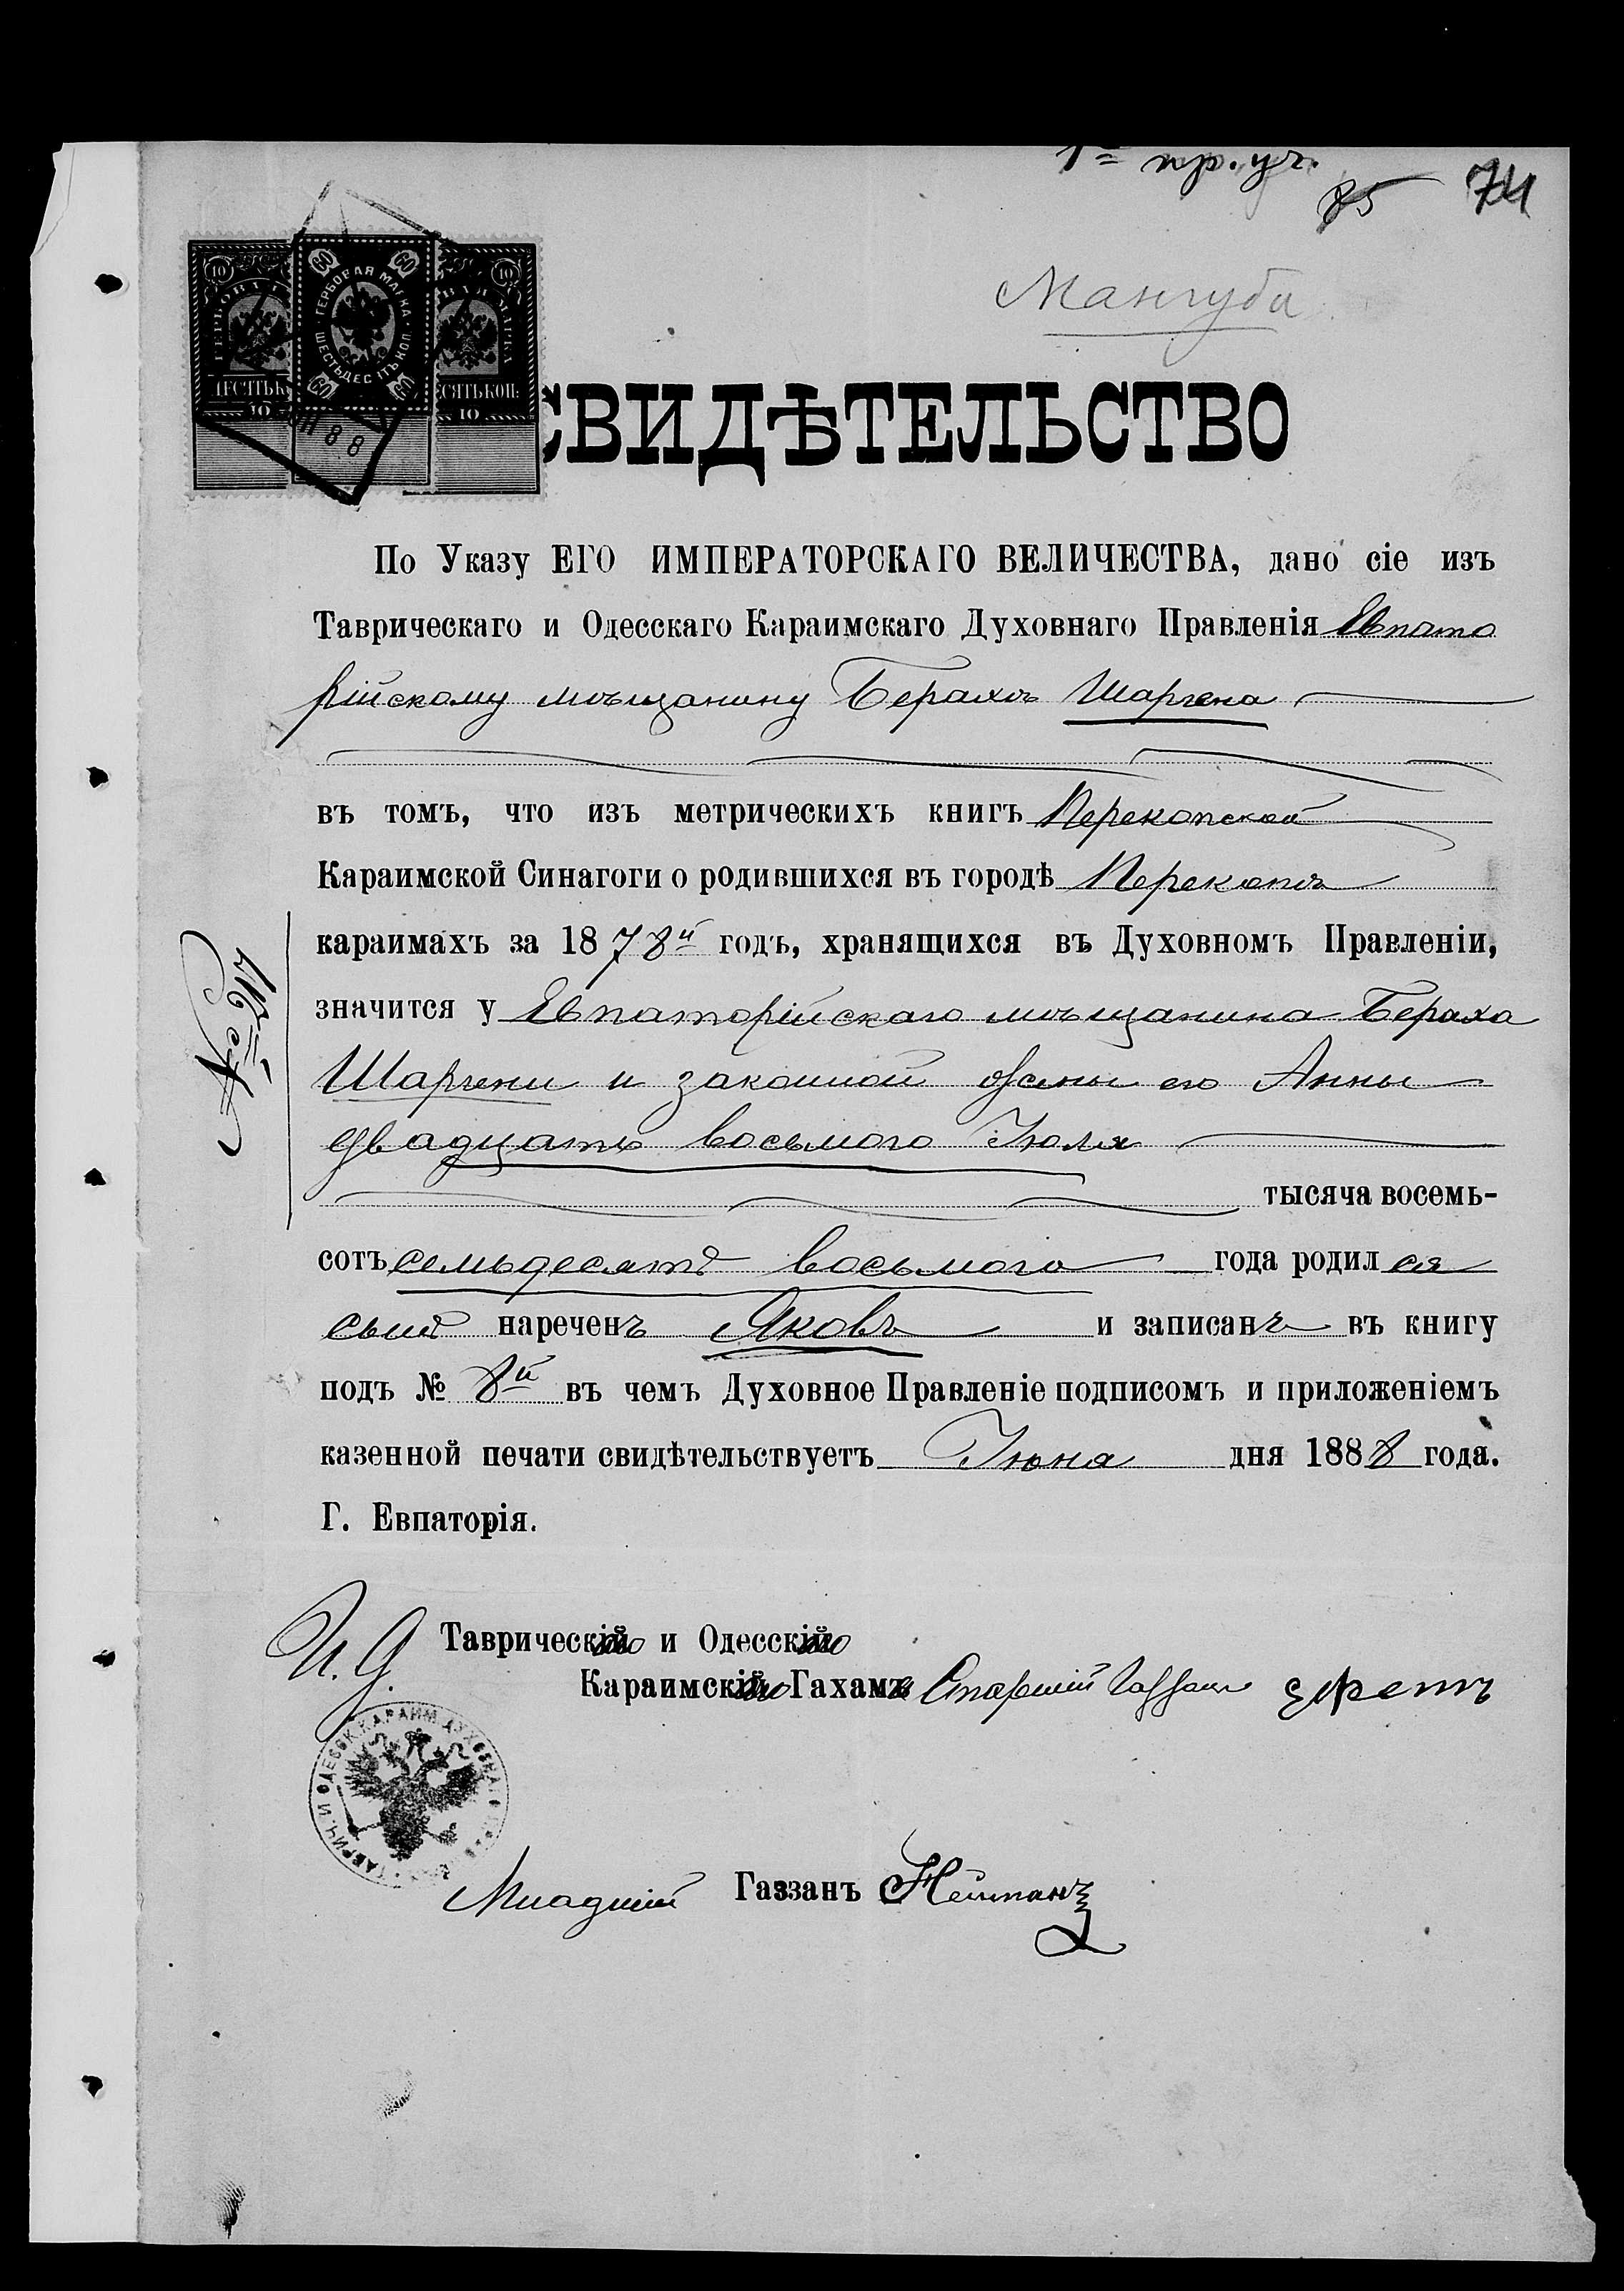 1= пр. уч.
85 74
Мангуби
ГЕРБОВАЯ МАРКА
ШЕСТЬДЕСЯТЬ КОП.
60 60 60 60
10 10
ДЕСЯТЬ К
СЯТЬ КОП:
10 10
88
СВИДѢТЕЛЬСТВО
По Указу ЕГО ИМПЕРАТОРСКАГО ВЕЛИЧЕСТВА, дано сіе изъ
Таврическаго и Одесскаго Караимскаго Духовнаго Правленія Евпато
рійскому мѣщанину Берахъ Шаргена
въ томъ, что изъ метрическихъ книгъ Перекопской
Караимской Синагоги о родившихся въ городѣ Перекопѣ
караимахъ за 1878й годъ, хранящихся въ Духовномъ Правленіи,
значится у Евпаторійскаго мѣщанина Бераха
Шаргени и законной жены его Анны
двадцать восьмого Іюля
тысяча восемь-
сотъ семьдесятъ восьмого года родился
сынъ нареченъ Яковъ и записанъ въ книгу
подъ № 8й въ чемъ Духовное Правленіе подписомъ и приложеніемъ
казенной печати свидѣтельствуетъ Іюна дня 1888 года.
Г. Евпаторія.
№ 217
И. д. Таврическій и Одесскій
Караимскій Гахамъ Старшій Газзанъ
ТАВРИЧ. И ОДЕССК. КАРАИМ. ДУХОВНА
Младшій Газзанъ Нейманъ